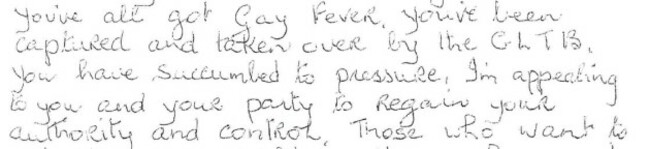 you've all got Gay Fever, you've been
captured and taken over by the GLTB.
you have succumbed to pressure, I'm appealing
to you and your party to Regain your
authority and control, Those who want to